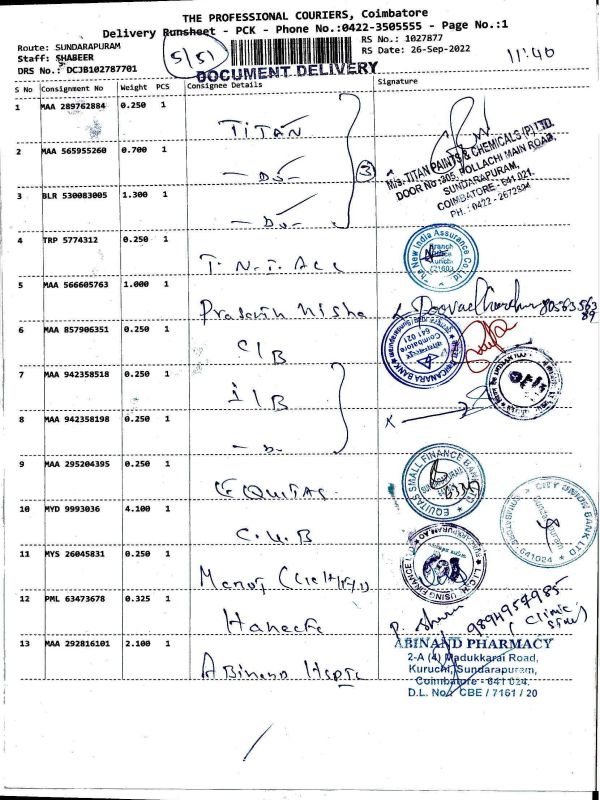 THE PROFESSIONAL COURIERS, Coimbatore
Delivery Runsheet - PCK - Phone No.:0422-3505555 - Page No.:1
Route: SUNDARAPURAM
RS No.: 1027877
Staff: SHABEER
RS Date: 26-Sep-2022
5/51
11:40
DRS No.: DCJB102787701
DOCUMENT DELIVERY
S No Consignment No Weight PCS Consignee Details Signature
1 MAA 289762884 0.250 1 TITAN
3
M/s. TITAN PAINTS & CHEMICALS (P) LTD.
DOOR No: 305, POLLACHI MAIN ROAD,
SUNDARAPURAM,
COIMBATORE - 641 021.
2 MAA 565955260 0.700 1 - Do -
3 BLR 530083005 1.300 1 - Do -
4 TRP 5774312 0.250 1
The New India Assurance Co. Ltd.
5 MAA 566605763 1.000 1 Prasanth Nisha
6 MAA 857906351 0.250 1 C/B
CANARA BANK
Coimbatore
641 027
7 MAA 942358518 0.250 1 I/B
8 MAA 942358198 0.250 1
X
9 MAA 295204395 0.250 1 EQUITAS
EQUITAS SMALL FINANCE BANK LTD
10 MYD 9993036 4.100 1 C.U.B
641024
BANK LTD
11 MYS 26045831 0.250 1 Manoj
L.I.C. HOUSING FINANCE LTD
12 PML 63473678 0.325 1 Haneefa
9894957985
(Clinic
13 MAA 292816101 2.100 1 Abinand
ABINAND PHARMACY
2-A (4) Madukkarai Road,
Kuruchi, Sundarapuram,
Coimbatore - 641 024.
D.L. No. CBE / 7161 / 20